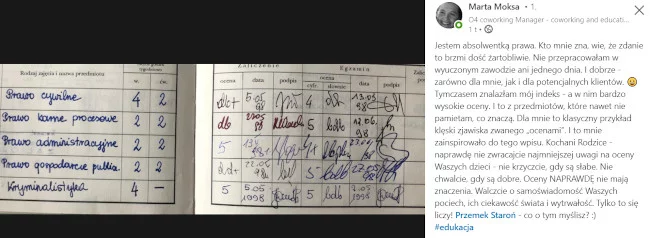 Rodzaj zajęcia i nazwa przedmiotu
Prawo cywilne 4 2
Prawo karne procesowe 2 2
Prawo administracyjne 2 2
Prawo gospodarcze publ. 2 2
Kryminalistyka 4 –
Zaliczenie Egzamin
ocena data podpis ocena data podpis
cyfr. słownie
db+ 5.05 98 4 db 13.05 98
db 98 5 bdb 12.06. 98
5 98
d.b+ 22.05 98 5 bdb
5 5.05 1998 5 bdb 1998
Marta Moksa • 1.
O4 coworking Manager - coworking and educati...
1 t •
Jestem absolwentką prawa. Kto mnie zna, wie, że zdanie
to brzmi dość żartobliwie. Nie przepracowałam w
wyuczonym zawodzie ani jednego dnia. I dobrze -
zarówno dla mnie, jak i dla potencjalnych klientów. 😉
Tymczasem znalazłam mój indeks - a w nim bardzo
wysokie oceny. I to z przedmiotów, które nawet nie
pamiętam, co znaczą. Dla mnie to klasyczny przykład
klęski zjawiska zwanego „ocenami”. I to mnie
zainspirowało do tego wpisu. Kochani Rodzice -
naprawdę nie zwracajcie najmniejszej uwagi na oceny
Waszych dzieci - nie krzyczcie, gdy są słabe. Nie
chwalcie, gdy są dobre. Oceny NAPRAWDĘ nie mają
znaczenia. Walczcie o samoświadomość Waszych
pociech, ich ciekawość świata i wytrwałość. Tylko to się
liczy! Przemek Staroń - co o tym myślisz? :)
#edukacja